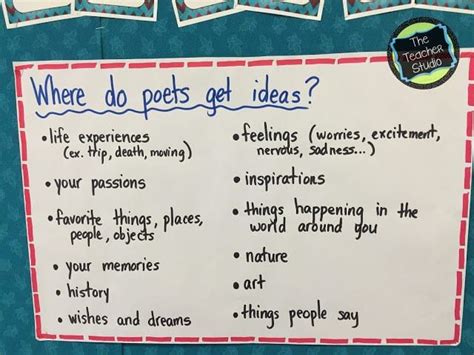 The
Teacher
Studio
Where do poets get ideas?
• life experiences
(ex. trip, death, moving)
• your passions
• favorite things, places,
people, objects
• your memories
• history
• wishes and dreams
• feelings (worries, excitement,
nervous, sadness...)
• inspirations
• things happening in the
world around you
• nature
• art
• things people say